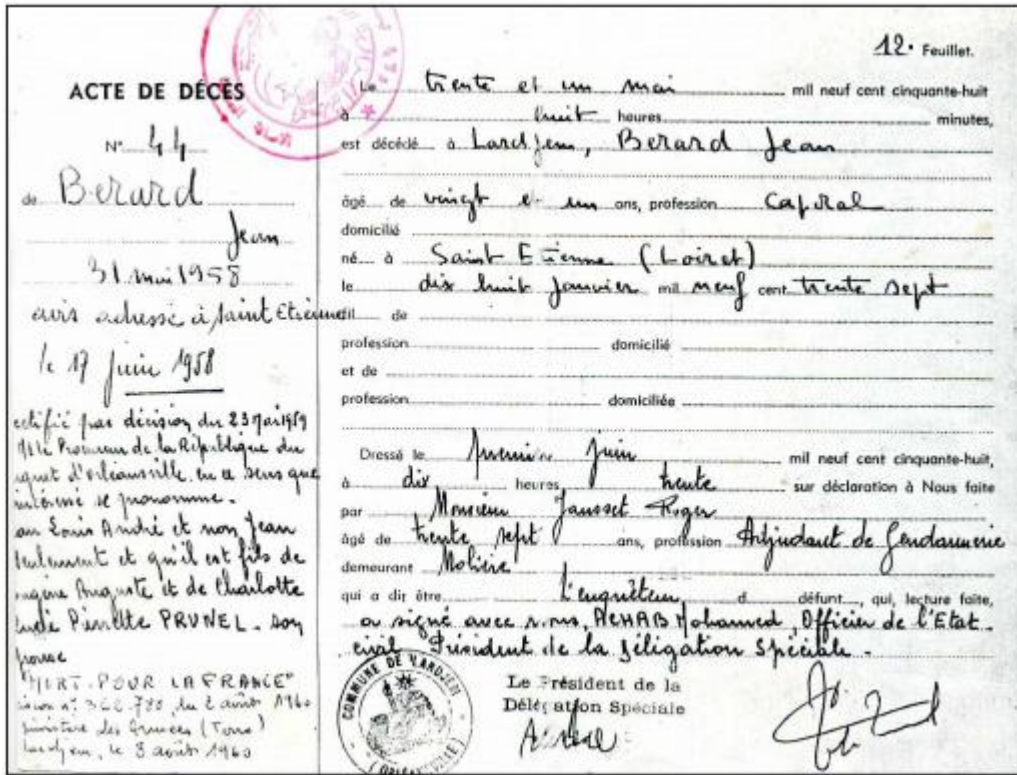 12. Feuillet.
ACTE DE DÉCÈS
N° 44
de Berard
Jean
31 mai 1958
avis adressé à Saint Etienne
le 17 juin 1958
ectifié par décision du 23 Mai 1959
Mr le Procureur de la République du
quet d'Orléansville en ce sens que
intéressé se prénomme.
an Louis André et non Jean
seulement et qu'il est fils de
ugène Auguste et de Charlotte
Pierrette PRUNEL - son
pouse
"MORT POUR LA FRANCE"
du 2 août 1960
ministère des (Terre)
Lardjem, le 3 août 1960
Le trente et un mai mil neuf cent cinquante-huit
à huit heures minutes,
est décédé à Lardjem, Berard Jean
âgé de vingt et un ans, profession Caporal
domicilié
né à Saint Etienne (Loiret)
le dix huit Janvier mil neuf cent trente sept
fil de
profession domicilié
et de
profession domiciliée
Dressé le premier Juin mil neuf cent cinquante-huit,
à dix heures trente sur déclaration à Nous faite
par Monsieur Jausset Roger
âgé de trente sept ans, profession Adjudant de Gendarmerie
demeurant Molière
qui a dit être L'enquêteur d défunt, qui, lecture faite,
a signé avec nous, ACHAB Mohamed, Officier de l'Etat-
civil Président de la Délégation Spéciale.
Le Président de la
Délégation Spéciale
COMMUNE DE LARDJEM